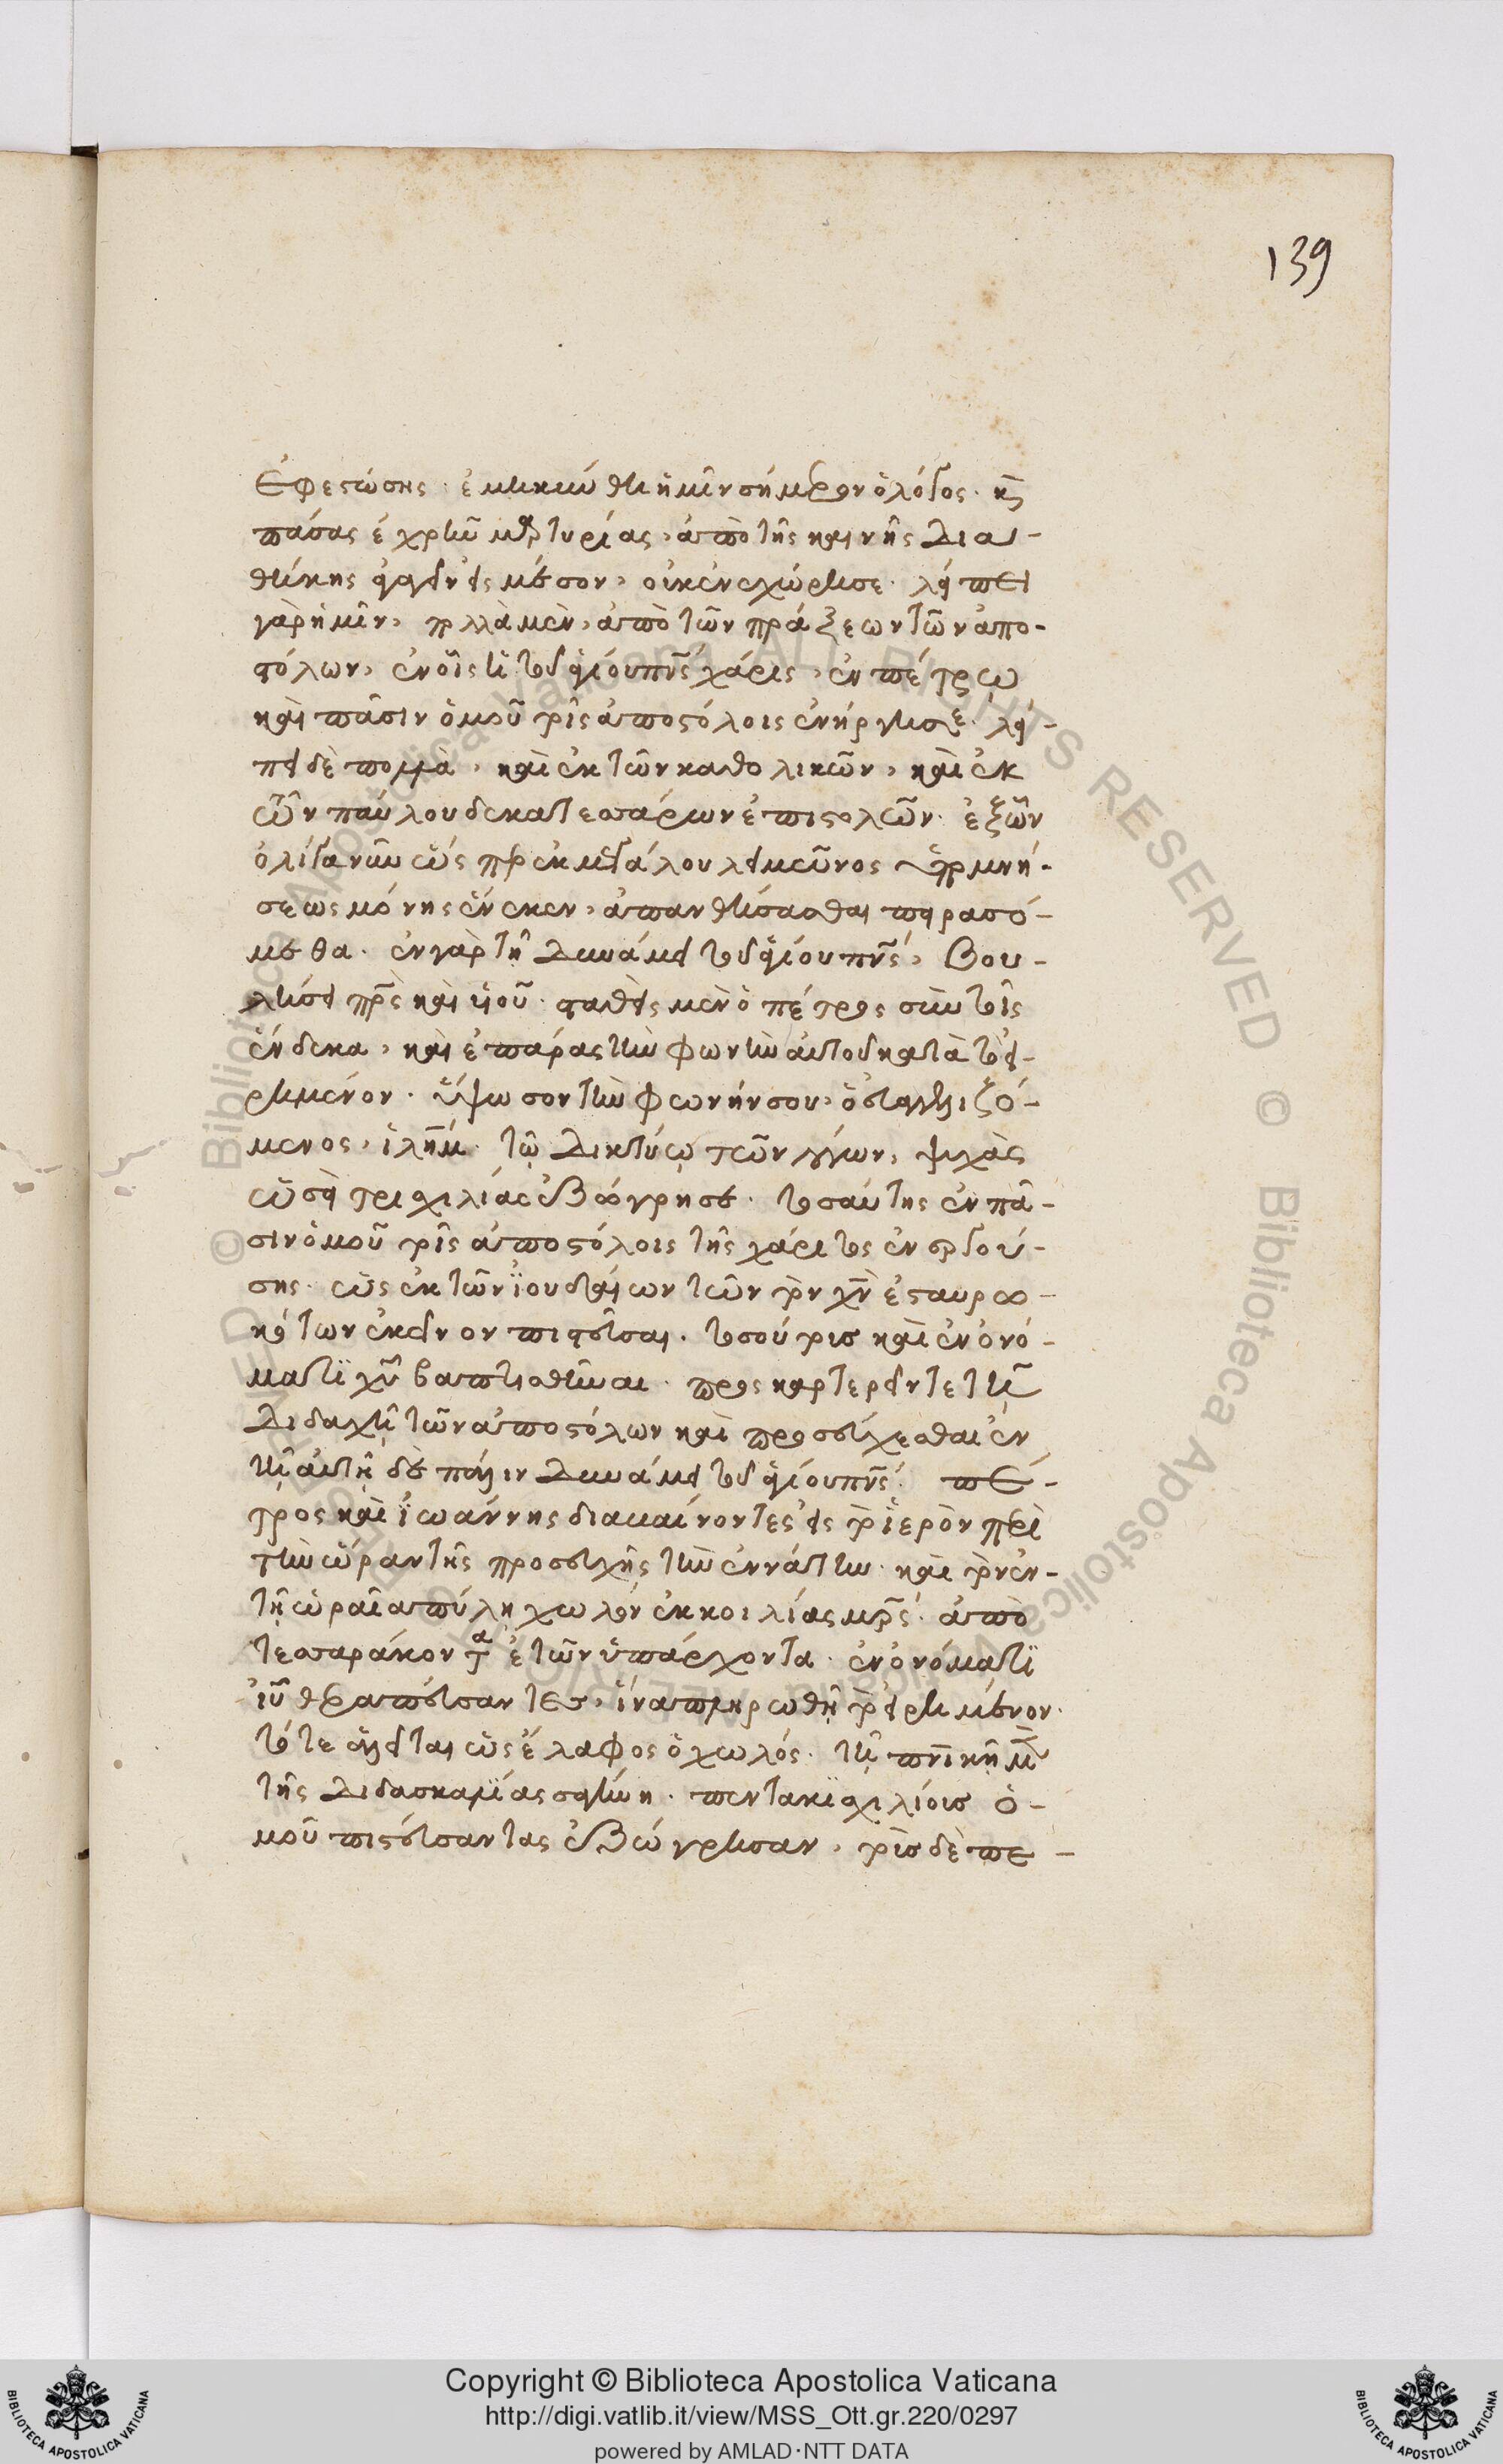 139
ἐφεστώσης. ἐμηκύνθη ἡμῖν σήμερον ὁ λόγος. κὶ
πάσας ἐχρῆν μαρτυρίας, ἀπὸ τῆς καινῆς δια-
θήκης ἀγαγεῖν εἰς μέσον, οὐκ ἐνεχώρησε. λείπει
γὰρ ἡμῖν, πολλὰ μὲν, ἀπὸ τῶν πράξεων τῶν ἀπο-
στόλων, ἐν οἷς ἡ τοῦ ἁγίου πνς χάρις, ἐν πέτρω
καὶ πᾶσιν ὁμοῦ τοῖς ἀποστόλοις ἐνήργησε. λεί-
πει δὲ πολλὰ, καὶ ἐκ τῶν καθολικῶν, καὶ ἐκ
τῶν παύλου δεκατεσσάρων ἐπιστολῶν. ἐξ ὧν
ὀλίγα νῦν ὡς περ ἐκ μεγάλου λειμῶνος
σεως μόνης ἕνεκεν, ἀπανθίσασθαι πειρασό-
μεθα. ἐν γὰρ τῇ δυνάμει τοῦ ἁγίου πνς, βου-
λήσει πρς καὶ υἱοῦ. σταθεὶς μὲν ὁ πέτρος σὺν τοῖς
ἕνδεκα, καὶ ἐπάρας τὴν φωνὴν αὐτοῦ κατὰ τὸ εἰ-
ρημένον. ὕψωσον τὴν φωνήν σου, ὁ εὐαγγελιζό-
μενος, ἱλήμ. τῷ δικτύῳ τῶν λόγων, ψυχὰς
ὡσεὶ τρισχιλίας ἐζώγρησε. τοσαύτης ἐν πᾶ-
σιν ὁμοῦ τοῖς ἀποστόλοις τῆς χάριτος ἐνεργού-
σης. ὡς ἐκ τῶν ἰουδαίων τῶν τὸν χν ἐσταυρω-
κότων ἐκεῖνον πιστεῦσαι. τοσούτοις καὶ ἐν ὀνό-
ματι χυ βαπτισθῆναι. προσκαρτερεῖν τε τῇ
διδαχῇ τῶν ἀποστόλων καὶ προσεύχεσθαι ἐν
τῇ αὐτῇ δὲ πάλιν δυνάμει τοῦ ἁγίου πνς. πέ-
τρος καὶ ἰωάννης διαβαίνοντες εἰς τὸ ἱερὸν περὶ
τὴν ὥραν τῆς προσευχῆς τὴν ἐννάτην. καὶ τὸν ἐν
τῇ ὡραίᾳ πύλη χωλὸν ἐκ κοιλίας μρς. ἀπὸ
τεσσαράκοντα ἐτῶν ὑπάρχοντα. ἐν ὀνόματι
ιυ θεραπεύσαντες, ἵνα πληρωθῇ τὸ εἰρημένον.
τότε ἁλεῖται ὡς ἔλαφος ὁ χωλός. τῇ πνικῇ
τῆς διδασκαλίας σαγήνη. πεντακισχιλίοις ὁ-
μοῦ πιστεύσαντας ἐζώγρησαν. τοῖς δὲ πε-
Copyright © Biblioteca Apostolica Vaticana
http://digi.vatlib.it/view/MSS_Ott.gr.220/0297
powered by AMLAD·NTT DATA